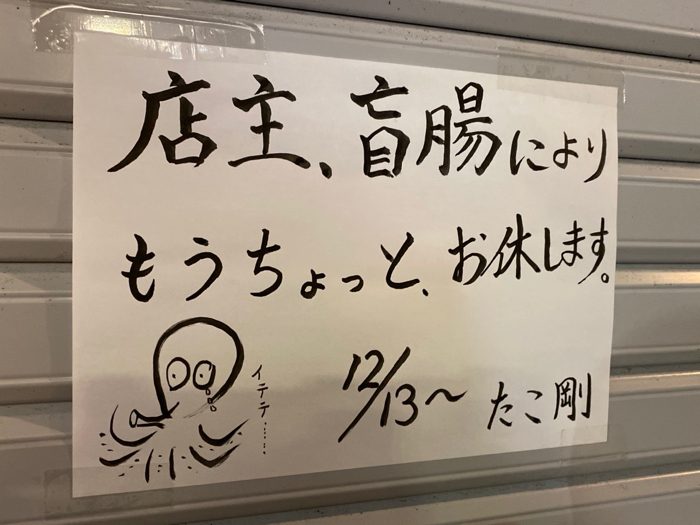 店主、盲腸により
もうちょっと、お休します。
イテテ……
12/13〜 たこ剛